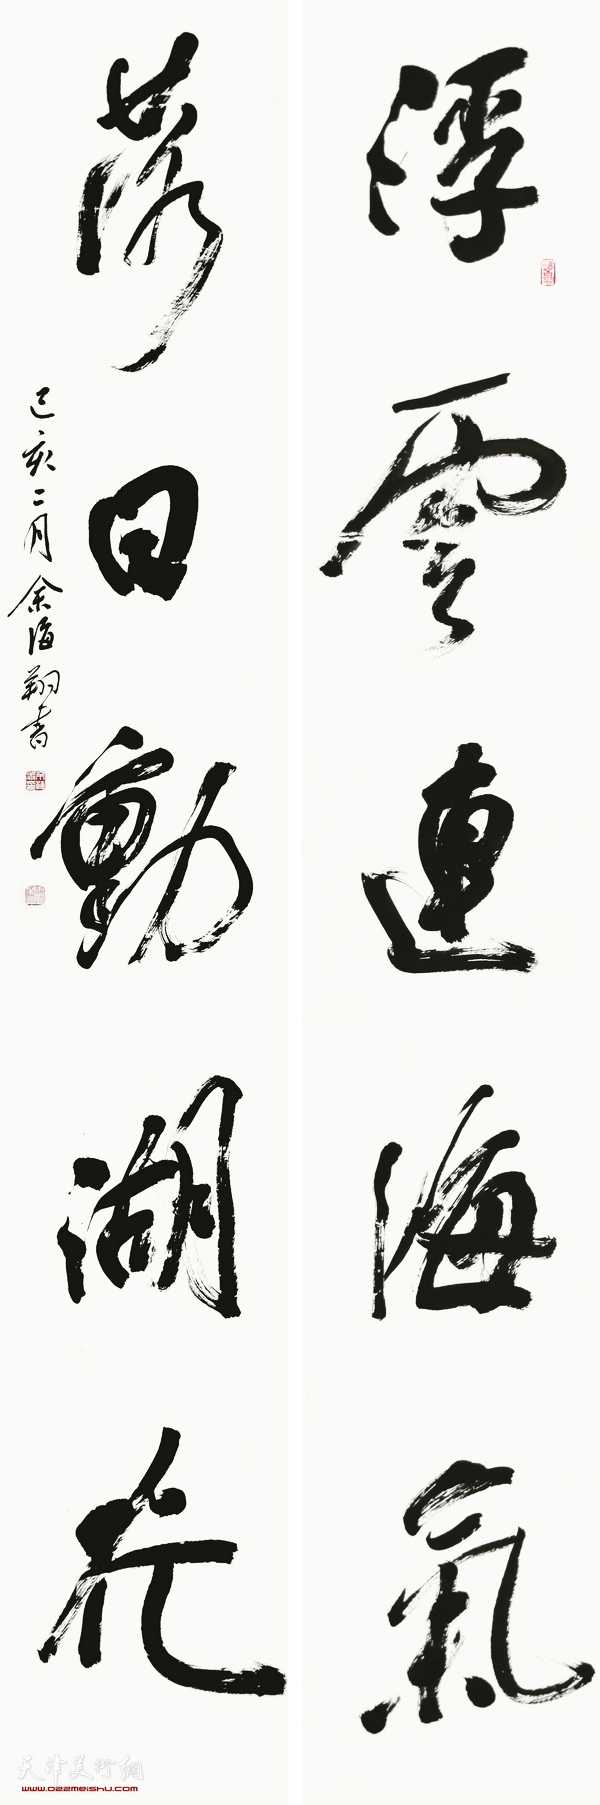 浮雲連海氣
落日動湖光
己亥二月余海翔書
天津美術網
www.022meishu.com